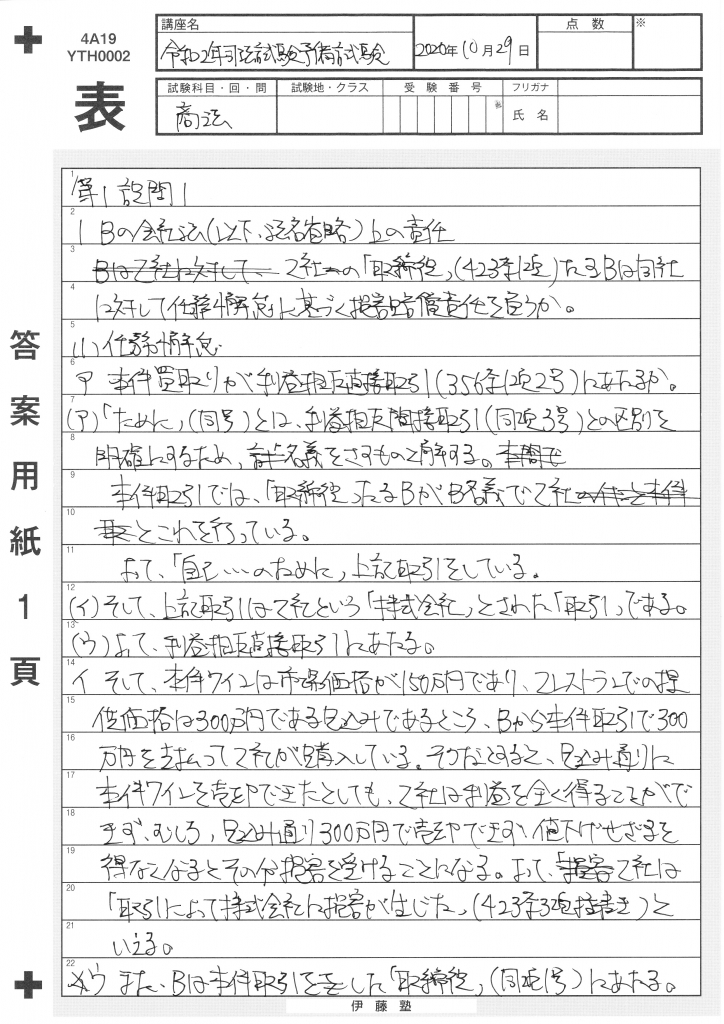 4A19
YTH0002
表
講座名
令和2年司法試験予備試験
2020年10月29日
点数
※
試験科目・回・問
商法
試験地・クラス
受験番号
フリガナ
氏名
答案用紙1頁
1 第1 設問1
2 1 Bの会社法(以下、法名省略)上の責任
3 Bは乙社に対して、乙社の「取締役」(423条1項)たるBは同社
4 に対して任務懈怠に基づく損害賠償責任を負うか。
5 (1) 任務懈怠
6 ア 本件買取りが利益相反直接取引(356条1項2号)にあたるか。
7 (ア)「ために」(同号)とは、利益相反間接取引(同項3号)との区別を
8 明確にするため、計名義をさすものと解する。本問で
9 本件取引では、「取締役」たるBがB名義で乙社
10 とこれを行っている。
11 よって、「自己…のために」上記取引をしている。
12 (イ)そして、上記取引は乙社という「株式会社」とされた「取引」である。
13 (ウ)よって、利益相反直接取引にあたる。
14 イ そして、本件ワインは市場価格が150万円であり、Zレストランでの提
15 供価格は300万円である見込みであるところ、Bから本件取引で300
16 万円を支払って乙社が購入している。そうだとすると、見込み通りに
17 本件ワインを売却できたとしても、乙社は利益を全く得ることができ
18 ず、むしろ、見込み通り300万円で売却できず、値下げせざるを
19 得なくなるとその分損害を受けることになる。よって、乙社は
20 「取引によって株式会社に損害が生じた」(423条3項柱書き)と
21 いえる。
22 ウ また、Bは本件取引をした「取締役」(同項1号)にあたる。
伊藤塾